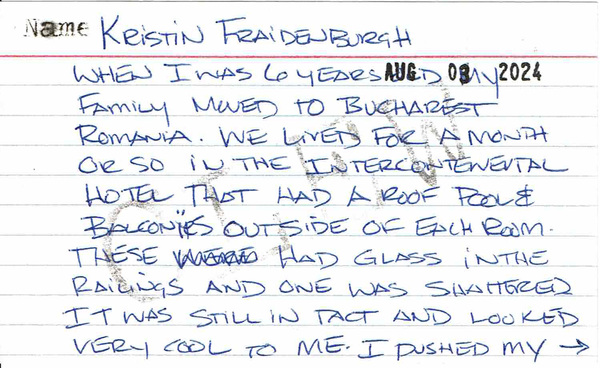 Name KRISTIN FRAIDENBURGH
WHEN I WAS 6 YEARS OLD MY AUG 2024
FAMILY MOVED TO BUCHAREST
ROMANIA. WE LIVED FOR A MONTH
OR SO IN THE INTERCONTENENTAL
HOTEL THAT HAD A ROOF POOL &
BALCONIES OUTSIDE OF EACH ROOM.
THESE HAD GLASS IN THE
RAILINGS AND ONE WAS SHATTERED
IT WAS STILL IN TACT AND LOOKED
VERY COOL TO ME. I PUSHED MY →